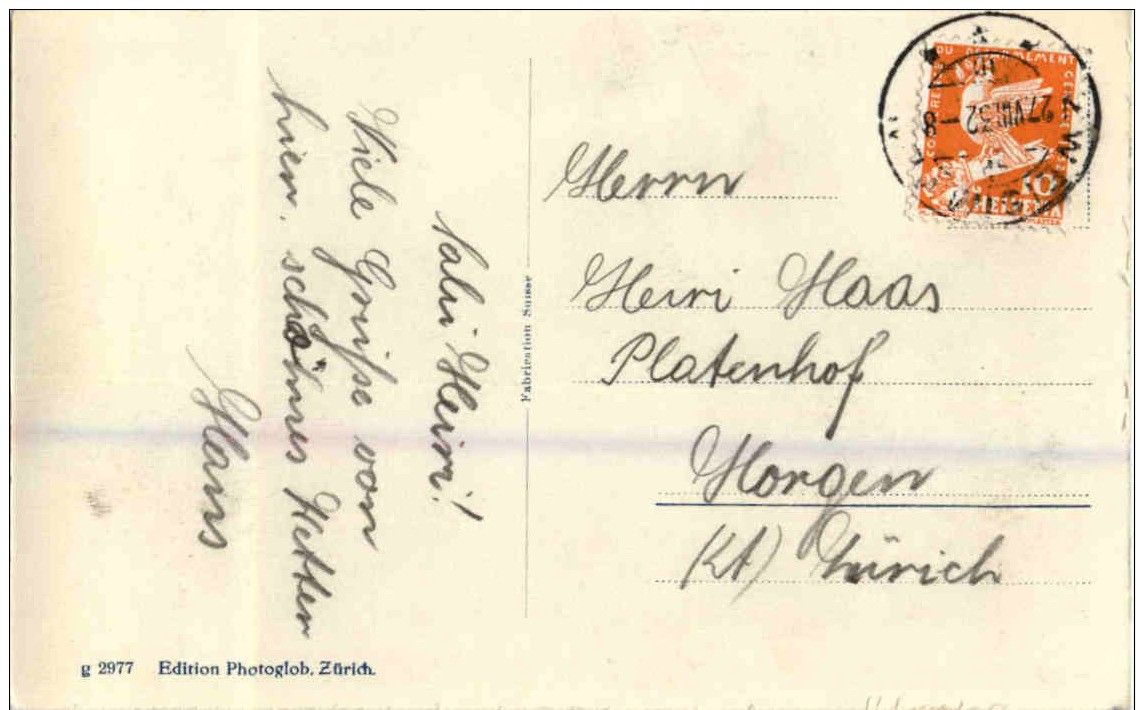 Salü Heiri!
Viele Grüsse von
hier. schönes Wetter
Hans
Herrn
Heiri Haas
Platenhof
Horgen
(Kt) Zürich
Fabrication Suisse
g 2977 Edition Photoglob, Zürich.
27.VIII.32-8
10
HELVETIA